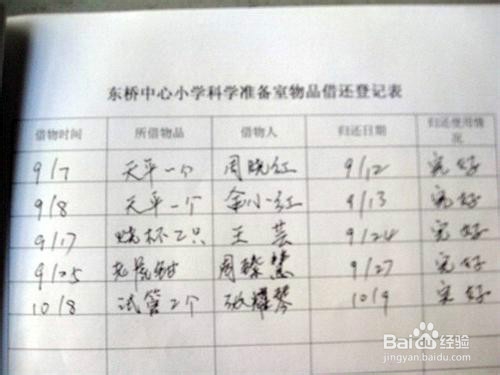 东桥中心小学科学准备室物品借还登记表
借物时间 所借物品 借物人 归还日期 归还使用情况
9/7 天平一个 周晓红 9/12 完好
9/8 天平一个 金小红 9/13 完好
9/17 烧杯2只 王芸 9/24 完好
9/25 周臻慧 9/27 完好
10/8 试管2个 张耀琴 10/9 完好
Baidu经验
jingyan.baidu.com